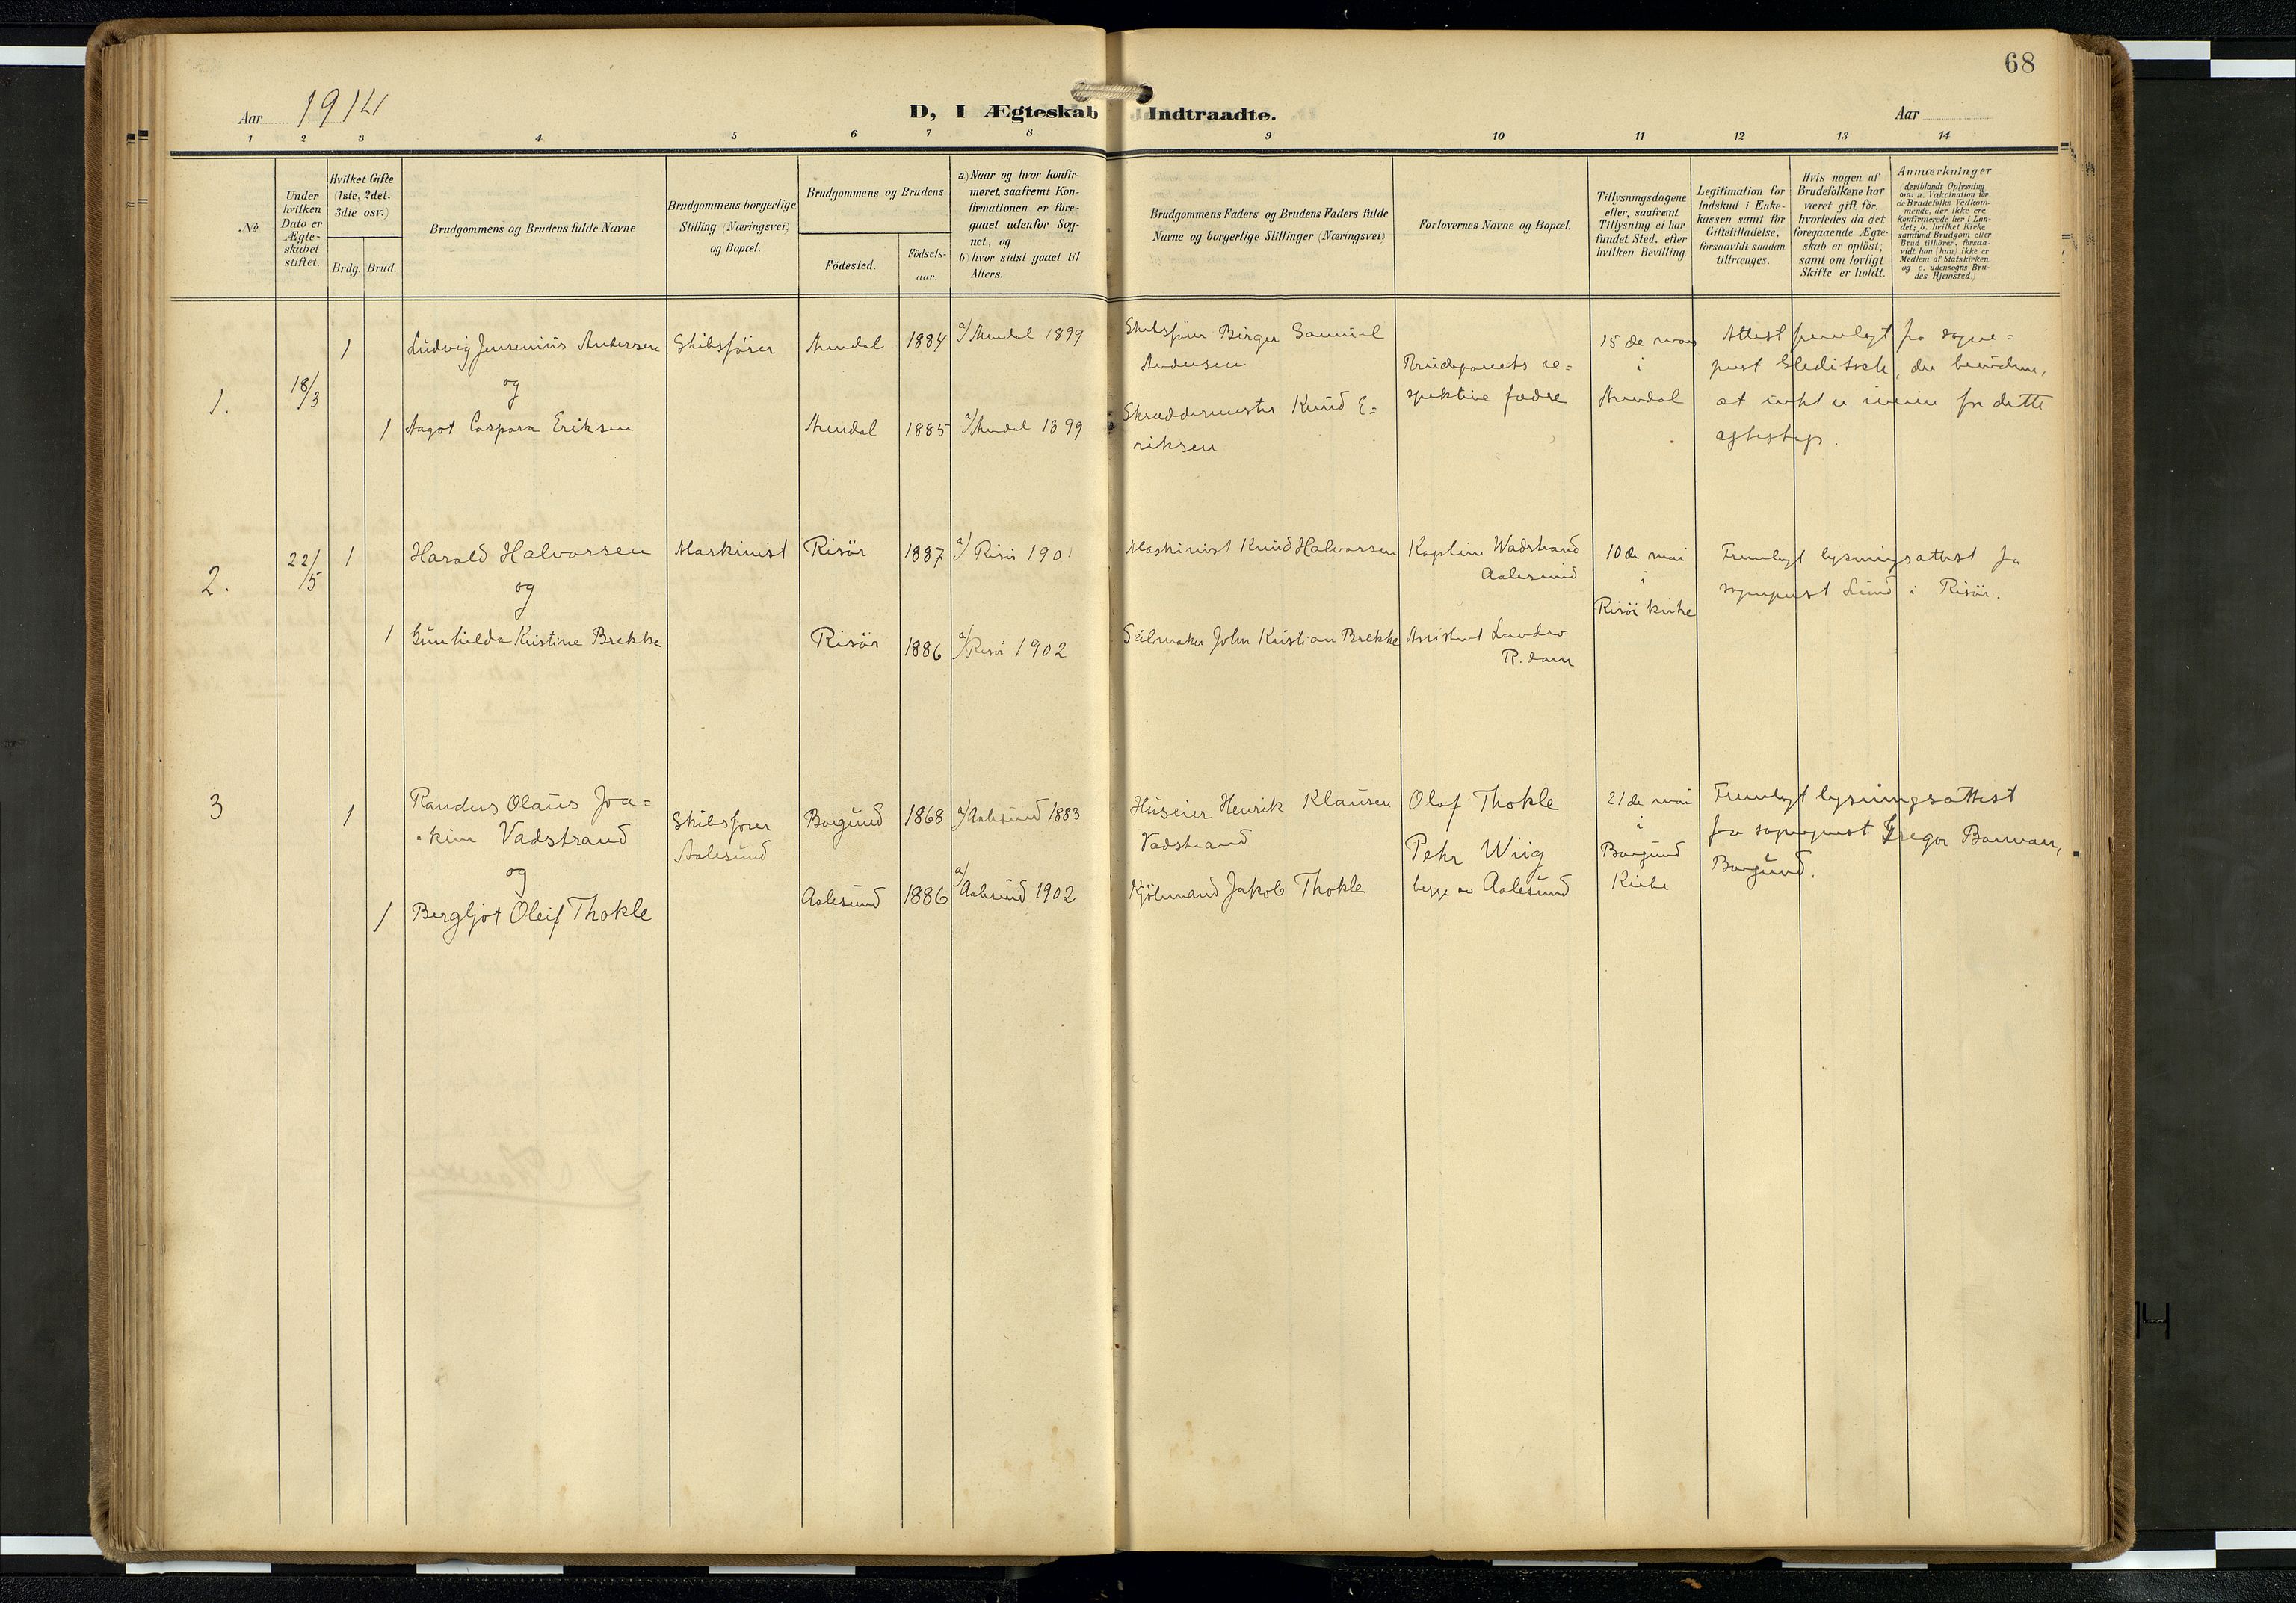 68
Aar 1914
D, I Ægteskab Indtraadte.
Aar
1 2 3 4 5 6 7 8 9 10 11 12 13 14
No
Under hvilken Dato er Ægteskabet stiftet.
Hvilket Gifte (1ste, 2det, 3die osv.)
Brdg. Brud.
Brudgommens og Brudens fulde Navne
Brudgommens borgerlige Stilling (Næringsvei) og Bopæl.
Brudgommens og Brudens
Födested.
Födselsaar.
a) Naar og hvor konfirmeret, saafremt Konfirmationen er foregaaet udenfor Sognet, og
b) hvor sidst gaaet til Alters.
Brudgommens Faders og Brudens Faders fulde Navne og borgerlige Stillinger (Næringsvei)
Forlovernes Navne og Bopæl.
Tillysningsdagene eller, saafremt Tillysning ei har fundet Sted, efter hvilken Bevilling.
Legitimation for Indskud i Enkekassen samt for Giftetilladelse, forsaavidt saadan tiltrænges.
Hvis nogen af Brudefolkene har været gift för, hvorledes da det foregaaende Ægteskab er oplöst; samt om lovligt Skifte er holdt.
Anmærkninger
(deriblandt Oplysning om: a. Vakcination for de Brudefolks Vedkommende, der ikke ere konfirmerede her i Landet; b. hvilket Kirkesamfund Brudgom eller Brud tilhörer, forsaavidt han (hun) ikke er Medlem af Statskirken og c. udensogns Brudes Hjemsted.)
1.
18/3
1
Ludvig Jensenius Andersen
Skibsfører
Arendal
1884
a/ Arendal 1899
Skibsfører Birger Samuel
Andersen
Brudeparets re=
spektive fædre
15de mars
i
Arendal
Attest fremlagt fra sogne=
prest Gleditsch, der bevidner,
at intet er iveien for dette
ægteskap.
og
1
Aagot Caspara Eriksen
Arendal
1885
a/ Arendal 1899
Skræddermester Knud E=
riksen
2.
22/5
1
Harald Halvorsen
Maskinist
Risör
1887
a/ Risör 1901
Maskinist Knud Halvorsen
Kaptein Wadstrand
Aalesund
10de mai
i
Risör kirke
Fremlagt lysningsattest fra
sogneprest Lund i Risör.
og
1
Gunhilda Kristine Brekke
Risör
1886
a/ Risör 1902
Seilmaker John Kristian Brekke
Assistent Landro
R.dam
3
1
Randus Olaus Joa=
=kim Vadstrand
Skibsfører
Aalesund
Borgund
1868
a/ Aalesund 1883
Huseier Henrik Klausen
Vadstrand
Olaf Thokle
Pehr Wiig
begge av Aalesund
21de mai
i
Borgund
Kirke
Fremlagt lysningsattest
fra sogneprest Gregor Barman,
Borgund.
og
1
Bergljot Oleif Thokle
Aalesund
1886
a/ Aalesund 1902
Kjöbmand Jakob Thokle